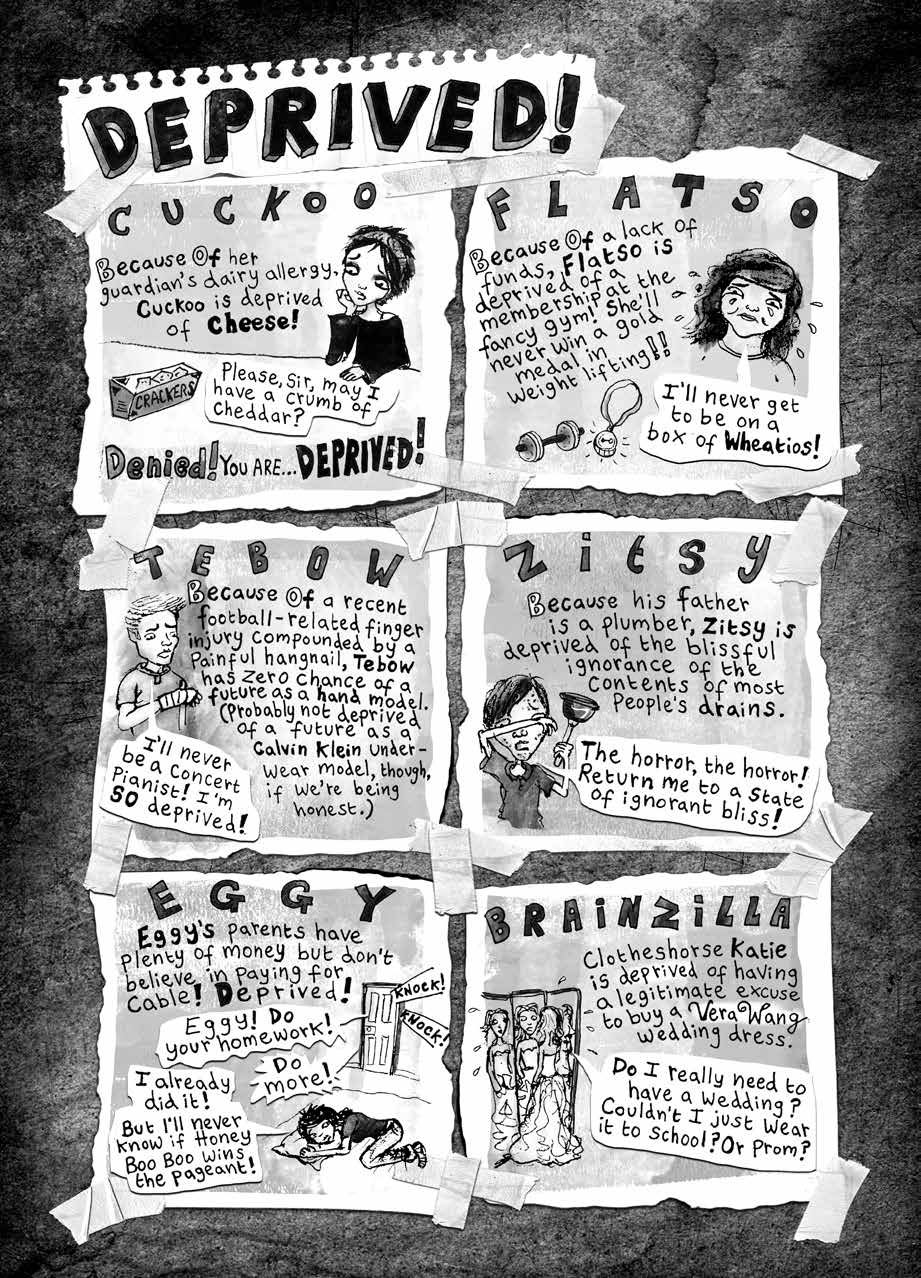 DEPRIVED!
CUCKOO
Because Of her
guardian's dairy allergy,
Cuckoo is deprived
of Cheese!
CRACKERS
Please, Sir, may I
have a crumb of
cheddar?
Denied! YOU ARE... DEPRIVED!
FLATSO
Because Of a lack of
funds, Flatso is
deprived of a
membership at the
fancy gym! She'll
never win a gold
medal in
weight lifting!!
I'll never get
to be on a
box of Wheatios!
TEBOW
Because Of a recent
football-related finger
injury compounded by a
Painful hangnail, Tebow
has zero chance of a
future as a hand model.
(Probably not deprived
of a future as a
Calvin Klein under-
wear model, though,
if we're being
honest.)
I'll never
be a concert
Pianist! I'm
SO deprived!
ZiTSY
Because his father
is a plumber, Zitsy is
deprived of the blissful
ignorance of the
contents of most
People's drains.
The horror, the horror!
Return me to a state
of ignorant bliss!
EGGY
Eggy's parents have
plenty of money but don't
believe in paying for
Cable! Deprived!
KNOCK!
KNOCK!
Eggy! Do
your homework!
Do
more!
I already
did it!
But I'll never
know if Honey
Boo Boo wins
the pageant!
BRAiNZiLLA
Clotheshorse Katie
is deprived of having
a legitimate excuse
to buy a Vera Wang
wedding dress.
Do I really need to
have a wedding?
Couldn't I just wear
it to school? Or Prom?